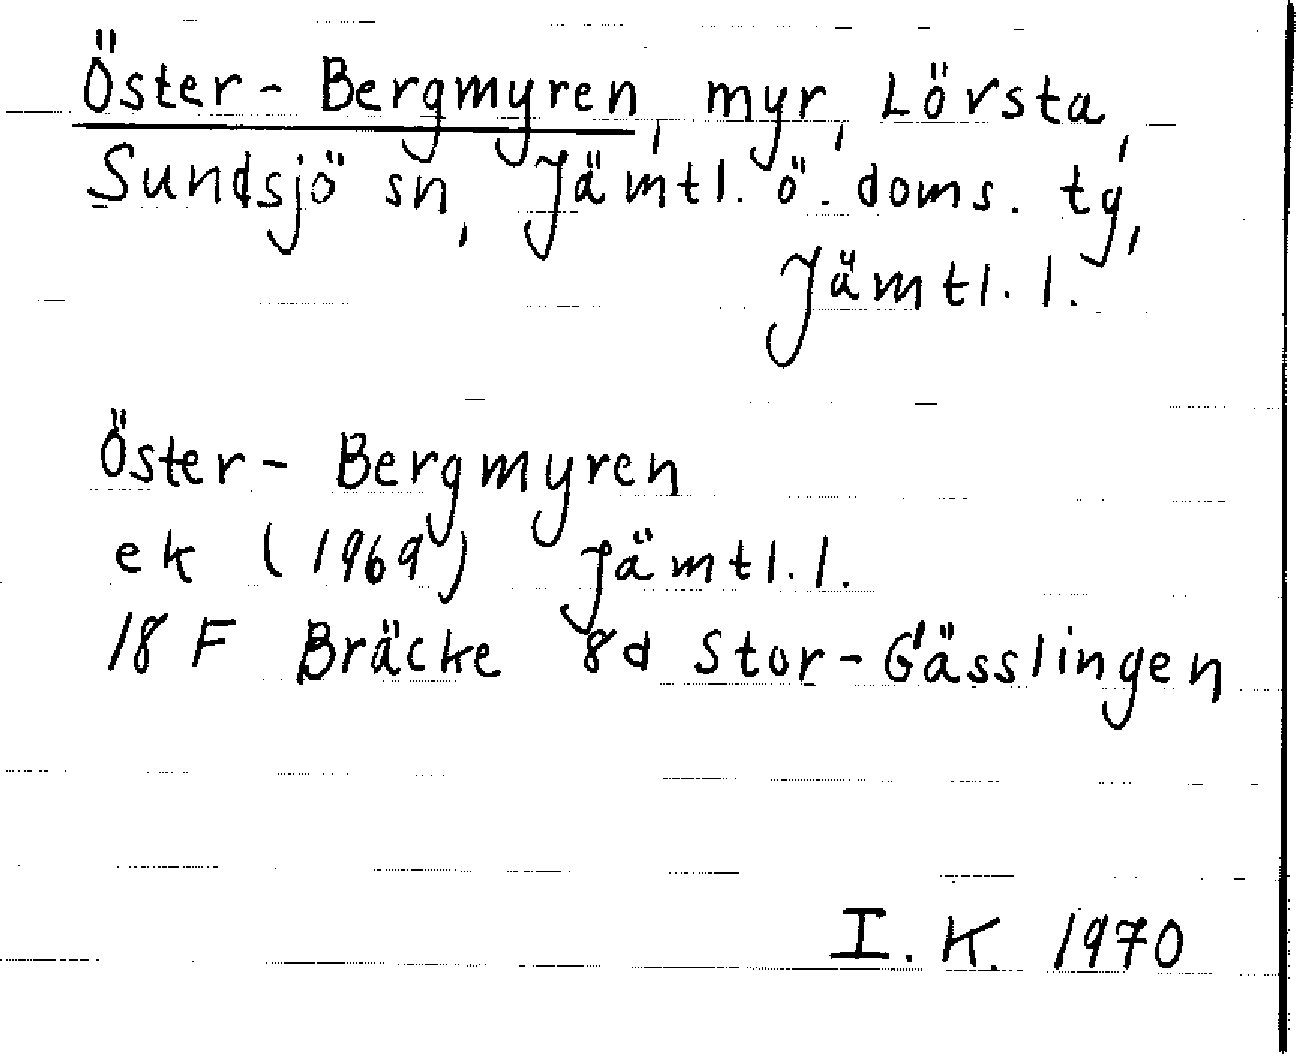 Öster-Bergmyren, myr, Lörsta,
Sundsjö sn, Jämtl. ö. doms. tg,
Jämtl. l.
Öster-Bergmyren
ek (1969) Jämtl. l.
18 F Bräcke 8d Stor-Gässlingen
I. K. 1970